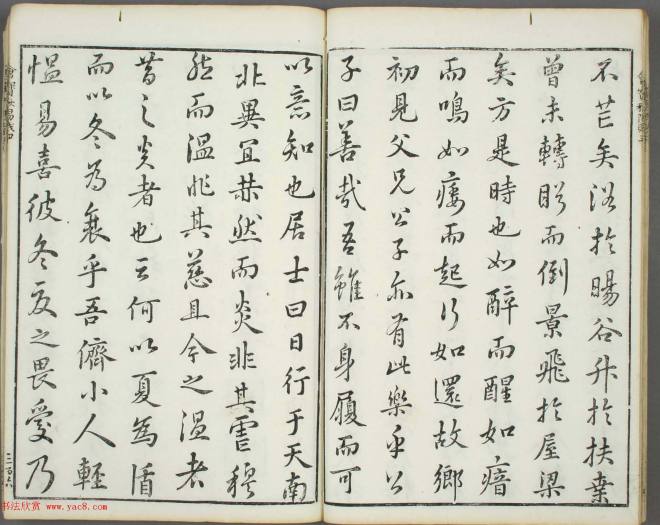 不芒矣浴於暘谷升於扶桑
曾未轉盼而倒景飛於屋梁
矣方是時也如醉而醒如瘖
而鳴如痿而起行如還故鄉
初見父兄公子亦有此樂乎公
子曰善哉吾雖不身履而可
以意知也居士曰日行于天南
北異宜赫然而炎非其虐穆
然而溫非其慈且今之溫者
昔之炎者也云何以夏為盾
而以冬為衰乎吾儕小人輕
慍易喜彼冬夏之畏愛乃
书法欣赏 www.yac8.com